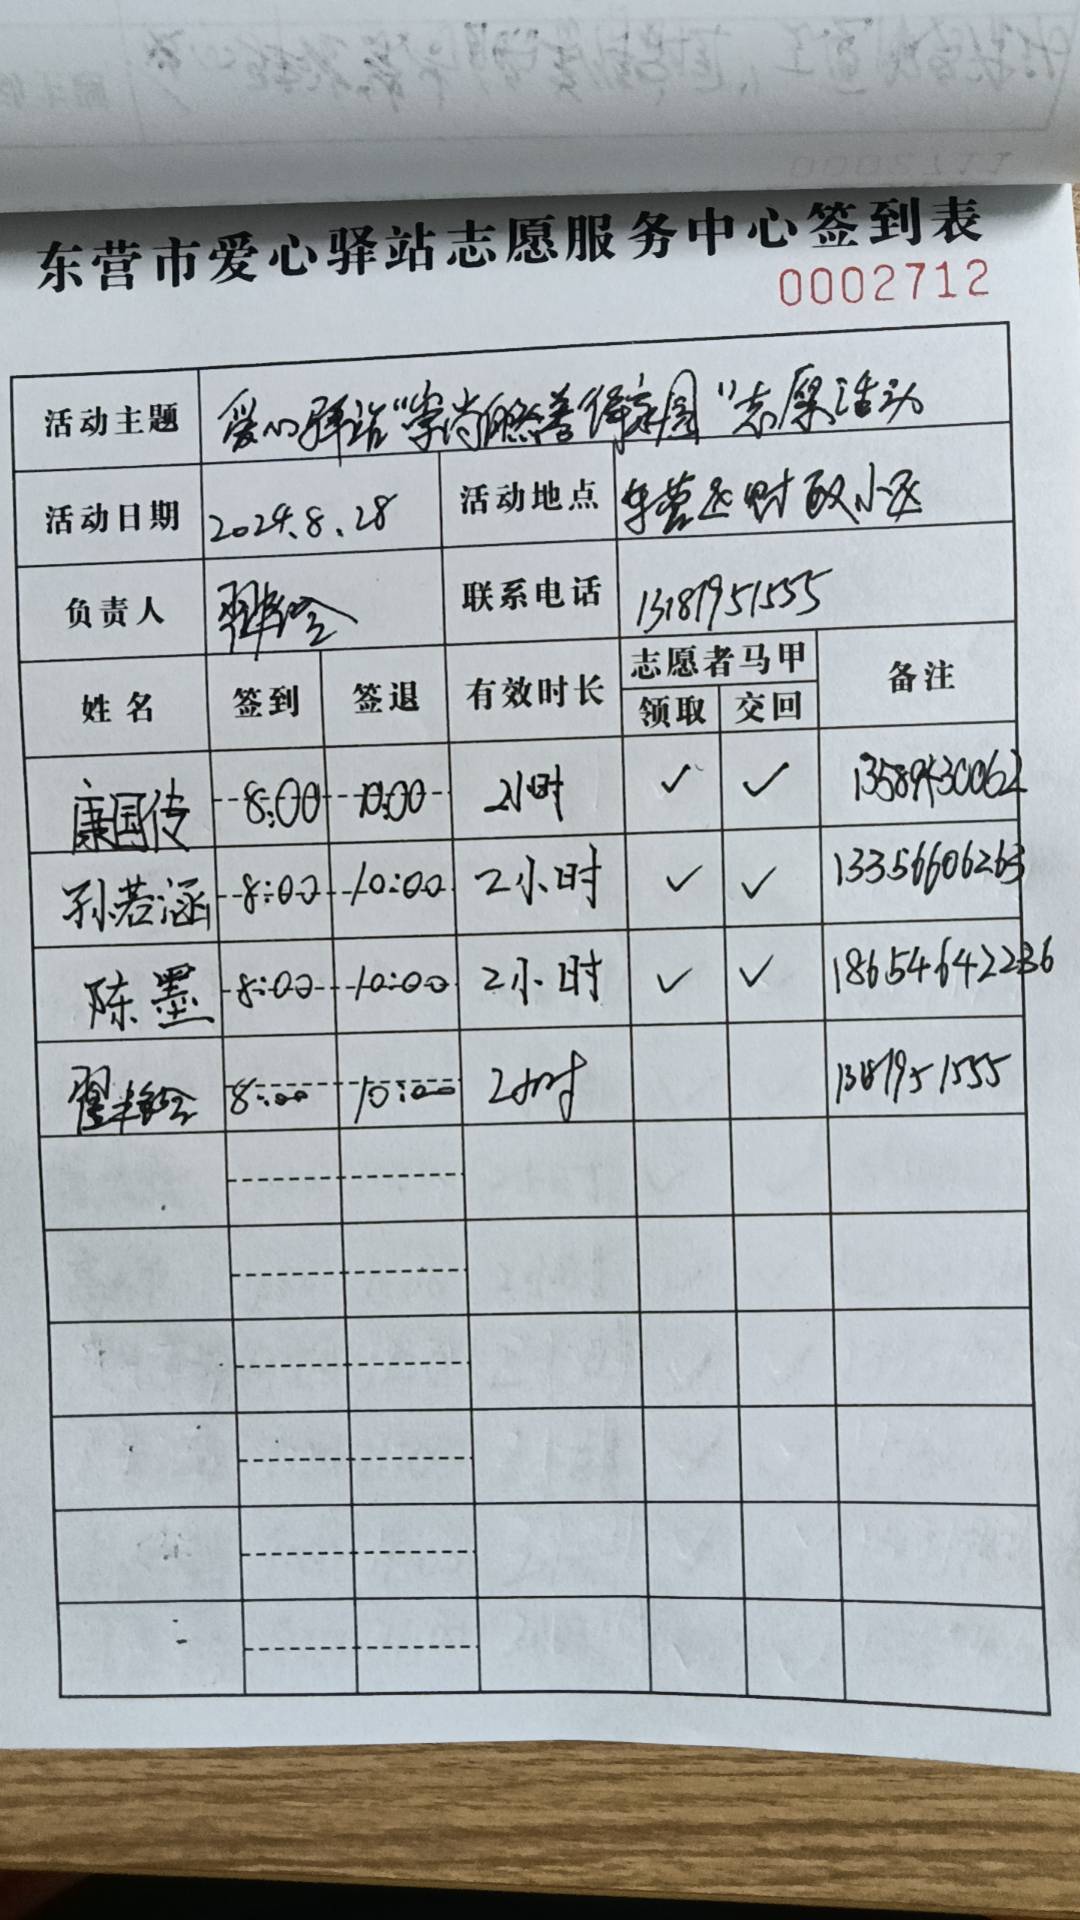 东营市爱心驿站志愿服务中心签到表
0002712
活动主题 爱心驿站“崇尚自然善待家园”志愿活动
活动日期 2024.8.28 活动地点 东营区财政小区
负责人 联系电话 13187951555
姓名 签到 签退 有效时长 志愿者马甲 备注
领取 交回
康国传 8:00 10:00 2小时 ✓ ✓ 13589430062
孙若涵 8:00 10:00 2小时 ✓ ✓ 13356606263
陈墨 8:00 10:00 2小时 ✓ ✓ 18654642236
8:00 10:00 2小时 13187951555